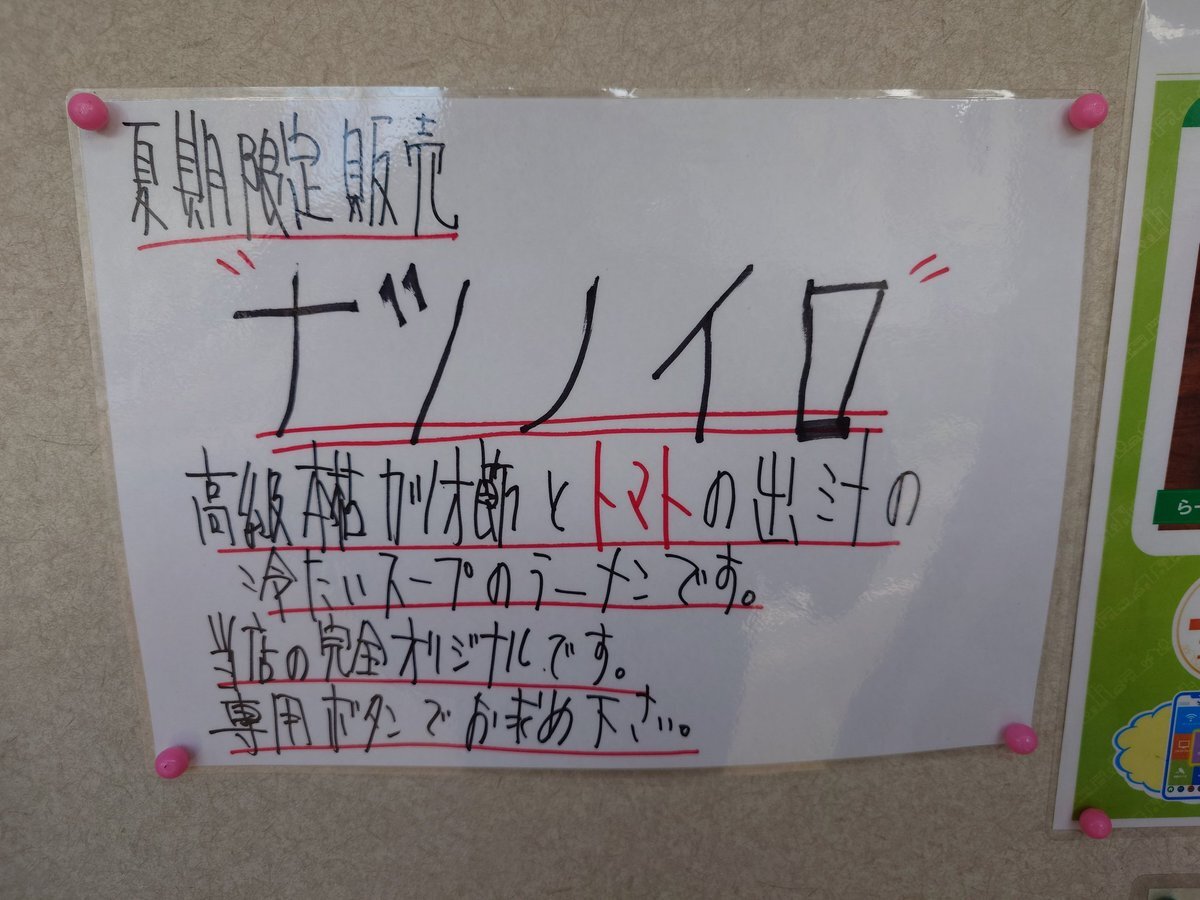 夏期限定販売
"ナツノイロ"
高級本枯カツオ節とトマトの出汁の
冷たいスープのラーメンです。
当店の完全オリジナルです。
専用ボタンでお求め下さい。
らー